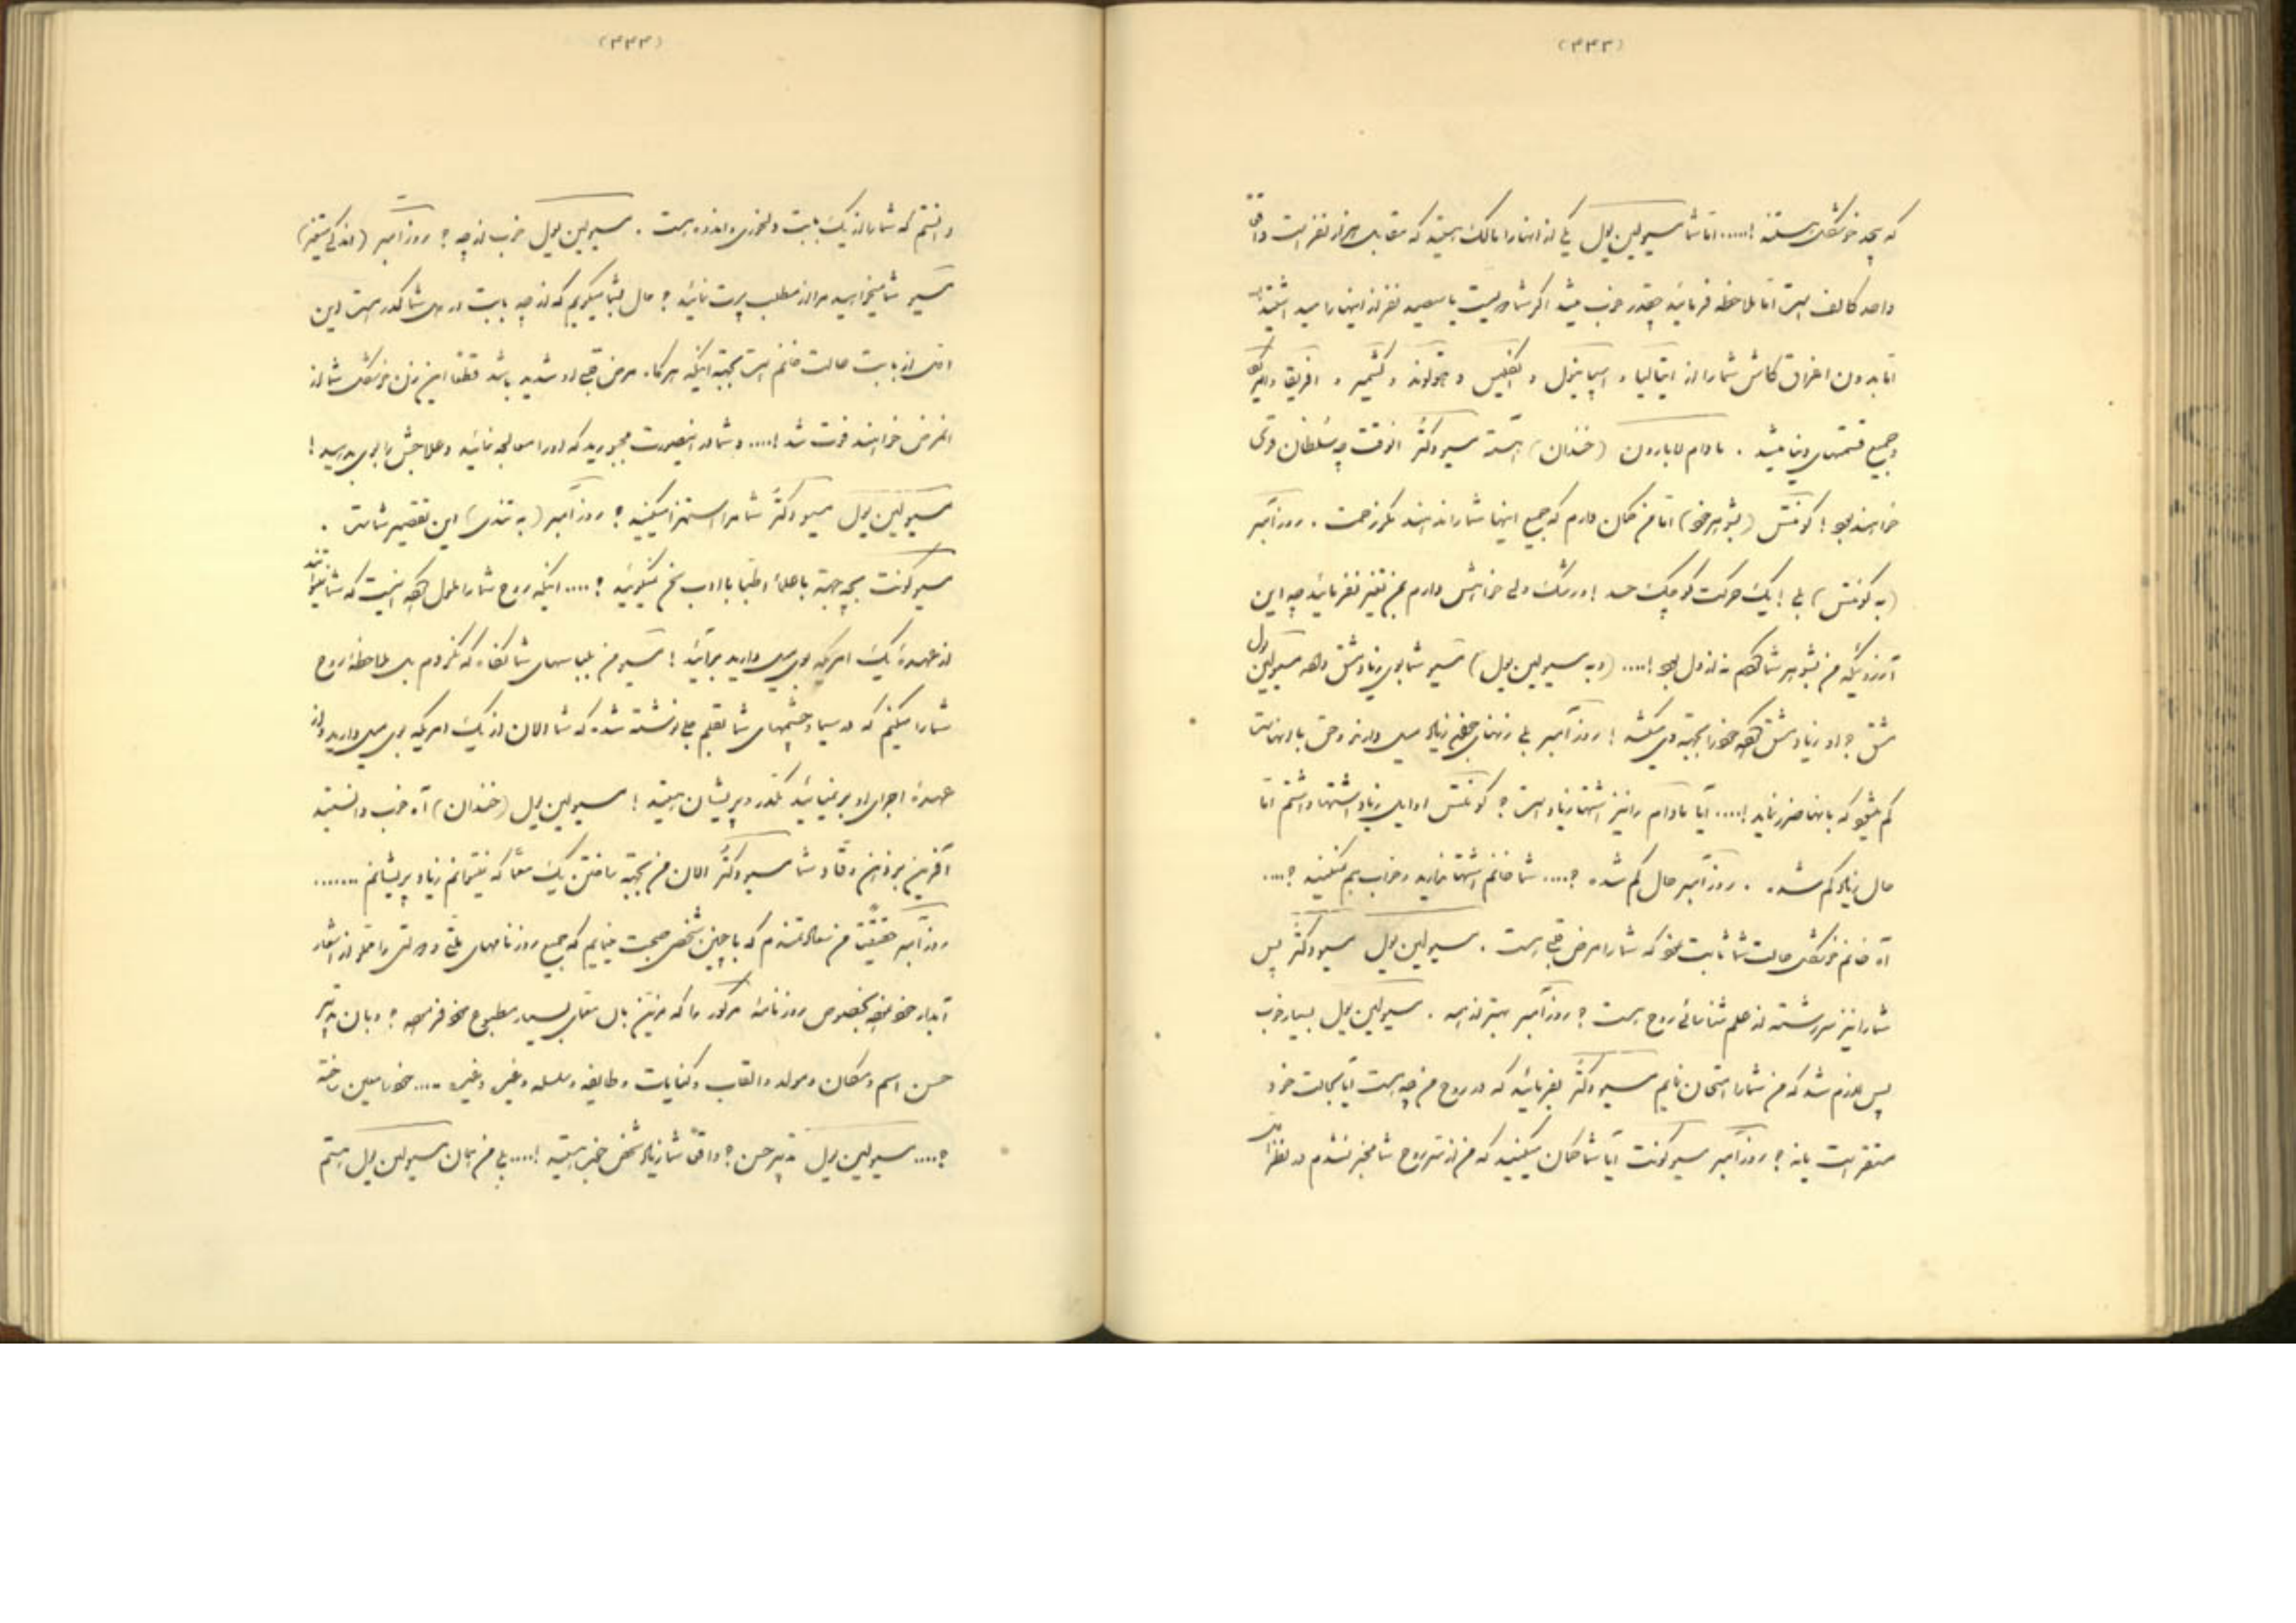 که بیحد خوشگل هستند !..... اما شما مسیو لین پول یکی از آنها را مالک هستید که مقابل هزار نفر است
واحد کالف است اما ملاحظه فرمائید چقدر خوب میشد اگر شما دویست یا سیصد نفر از اینها را میداشتید
اما بدون اغراق کاش شما را از ایتالیا و اسپانیول و انگلیس و و کشمیر و افریقا و امریکا
و جمیع قسمتهای دنیا میشد . مادام لابارون (خندان) آهسته مسیو دکتر آنوقت چه سلطان قوی
خواهند بود ! کونتس (بشوهر خود) اما من گمان دارم که جمیع اینها شما را نداند مگر زحمت . روزآمبر
(به کونتس) بلی ! یک حرکت کوچک حسد ! و رشک ولی خواهش دارم بمن تغیّر نفرمائید چه این
آرزوئیکه من بشوهر شما کردم نه از دل بود !.... (و به مسیو لین پول) مسیو شما بوی زیاد مشق داده مسیو لین پول
مشق ؟ او زیاد مشق کرده خود را بجهة می‌کشد ! روزآمبر بلی زنهای زیاد میل دارند و حتی با
کم که بآنها ضرر نماید !.... آیا مادام را نیز اشتها زیاد است ؟ کونتس اوایل زیاد اشتها داشتم اما
حال زیاد کم شده . روزآمبر حال کم شده ؟.... شما خانم اشتها ندارید و خواب هم نمیکنید ؟....
آه خانم خوشگل حالت شما ثابت نمود که شما را مرض قلبی است . مسیو لین پول مسیو دکتر پس
شما را نیز سررشته از علم شناسائی روح است ؟ روزآمبر بهتر از همه . مسیو لین پول بسیار خوب
پس لازم شد که من شما را امتحان نمایم مسیو دکتر بفرمائید که در روح من چه است آیا بحالت خود
مستقر است یا نه ؟ روزآمبر مسیو کونت آیا شما گمان میکنید که من از سرّ روح شما مخبر نشدم در نظر
دانستم که شما را از یک بابت دلخوری و اندوه است . مسیو لین پول خوب از چه ؟ روزآمبر (اندکی متغیّر)
مسیو شما میخواهید مرا از مطلب پرت نمائید ؟ حال بشما میگویم که از چه بابت در دل شما کدر است این
از بابت حالت خانم است بجهة اینکه هرگاه مرض قلبی او شدید باشد قطعا این زن خوشگل شما از
المرض خواهند فوت شد !.... و شما در اینصورت مجبورید که او را معالجه نمائید و علاجش را بوی بدهید !
مسیو لین پول مسیو دکتر شما مرا استهزا میکنید ؟ روزآمبر (به تندی) این تقصیر شماست .
مسیو کونت بچه جهة با علما و اطبا با ادب تکلم نمیکنید ؟.... اینکه روح شما را ملول کرده اینست که شما نمیتوانید
از عهدهٔ یک امریکه بوی میل دارید برآئید ! مسیو من بلباسهای شما نگاه نکردم بل ملاحظه روح
شما را میکنم که در سیما و چشمهای شما بقلم جلی نوشته شده که شما الان از یک امریکه بوی میل دارید و از
عهدهٔ اجرای او برنمیائید مکدر و پریشان هستید ! مسیو لین پول (خندان) آه خوب دانستید
آفرین بر ذهن وقّاد شما مسیو دکتر الان من بجهة یافتن یک معما که نمیتوانم زیاد پریشانم .......
روزآمبر حقیقتا من سعادتمندم که با چنین شخصی صحبت مینمایم که جمیع روزنامهای ملتی و دولتی را مملو از اشعار
آبدار خود نموده بخصوص روزنامهٔ مرکور را که مزین بآن معمای بسیار مطبوع خود فرموده ؟ و بآن تدبیر
حسن اسم و مکان و مولد و القاب و کنایات و طایفه و سلسله و غیره و غیره .... خود را معین ساخته
؟.... مسیو لین پول تدبیر حسن ؟ واقعا شما زیاد شخص خوب هستید !.... بلی من همان مسیو لین پول هستم